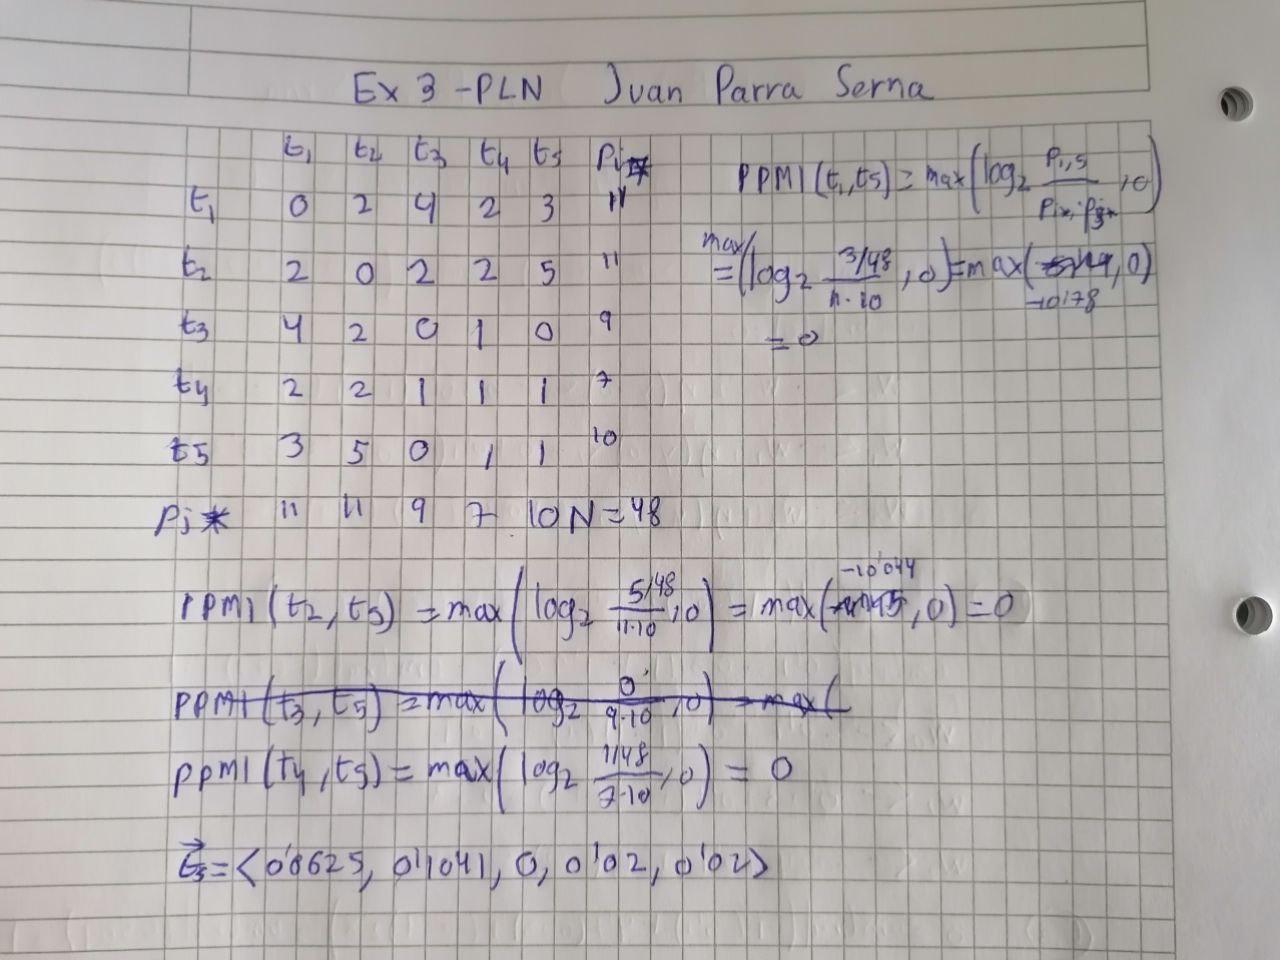 Ex 3 - PLN Juan Parra Serna
t1 t2 t3 t4 t5 Pi*
t1 0 2 4 2 3 11
t2 2 0 2 2 5 11
t3 4 2 0 1 0 9
t4 2 2 1 1 1 7
t5 3 5 0 1 1 10
Pj* 11 11 9 7 10 N=48
PPMI (t1, t5) = max(log2 Pi,5 / Pi*·Pj* , 0)
= max(log2 3/48 / 11·10 , 0) = max( -10'78 , 0)
= 0
PPMI (t2, t5) = max(log2 5/48 / 11·10 , 0) = max( -10'044 , 0) = 0
PPMI (t3, t5) = max(log2 0 / 9·10 , 0) = max(
PPMI (t4, t5) = max(log2 1/48 / 7·10 , 0) = 0
t5 = <0'0625, 0'1041, 0, 0'02, 0'02>